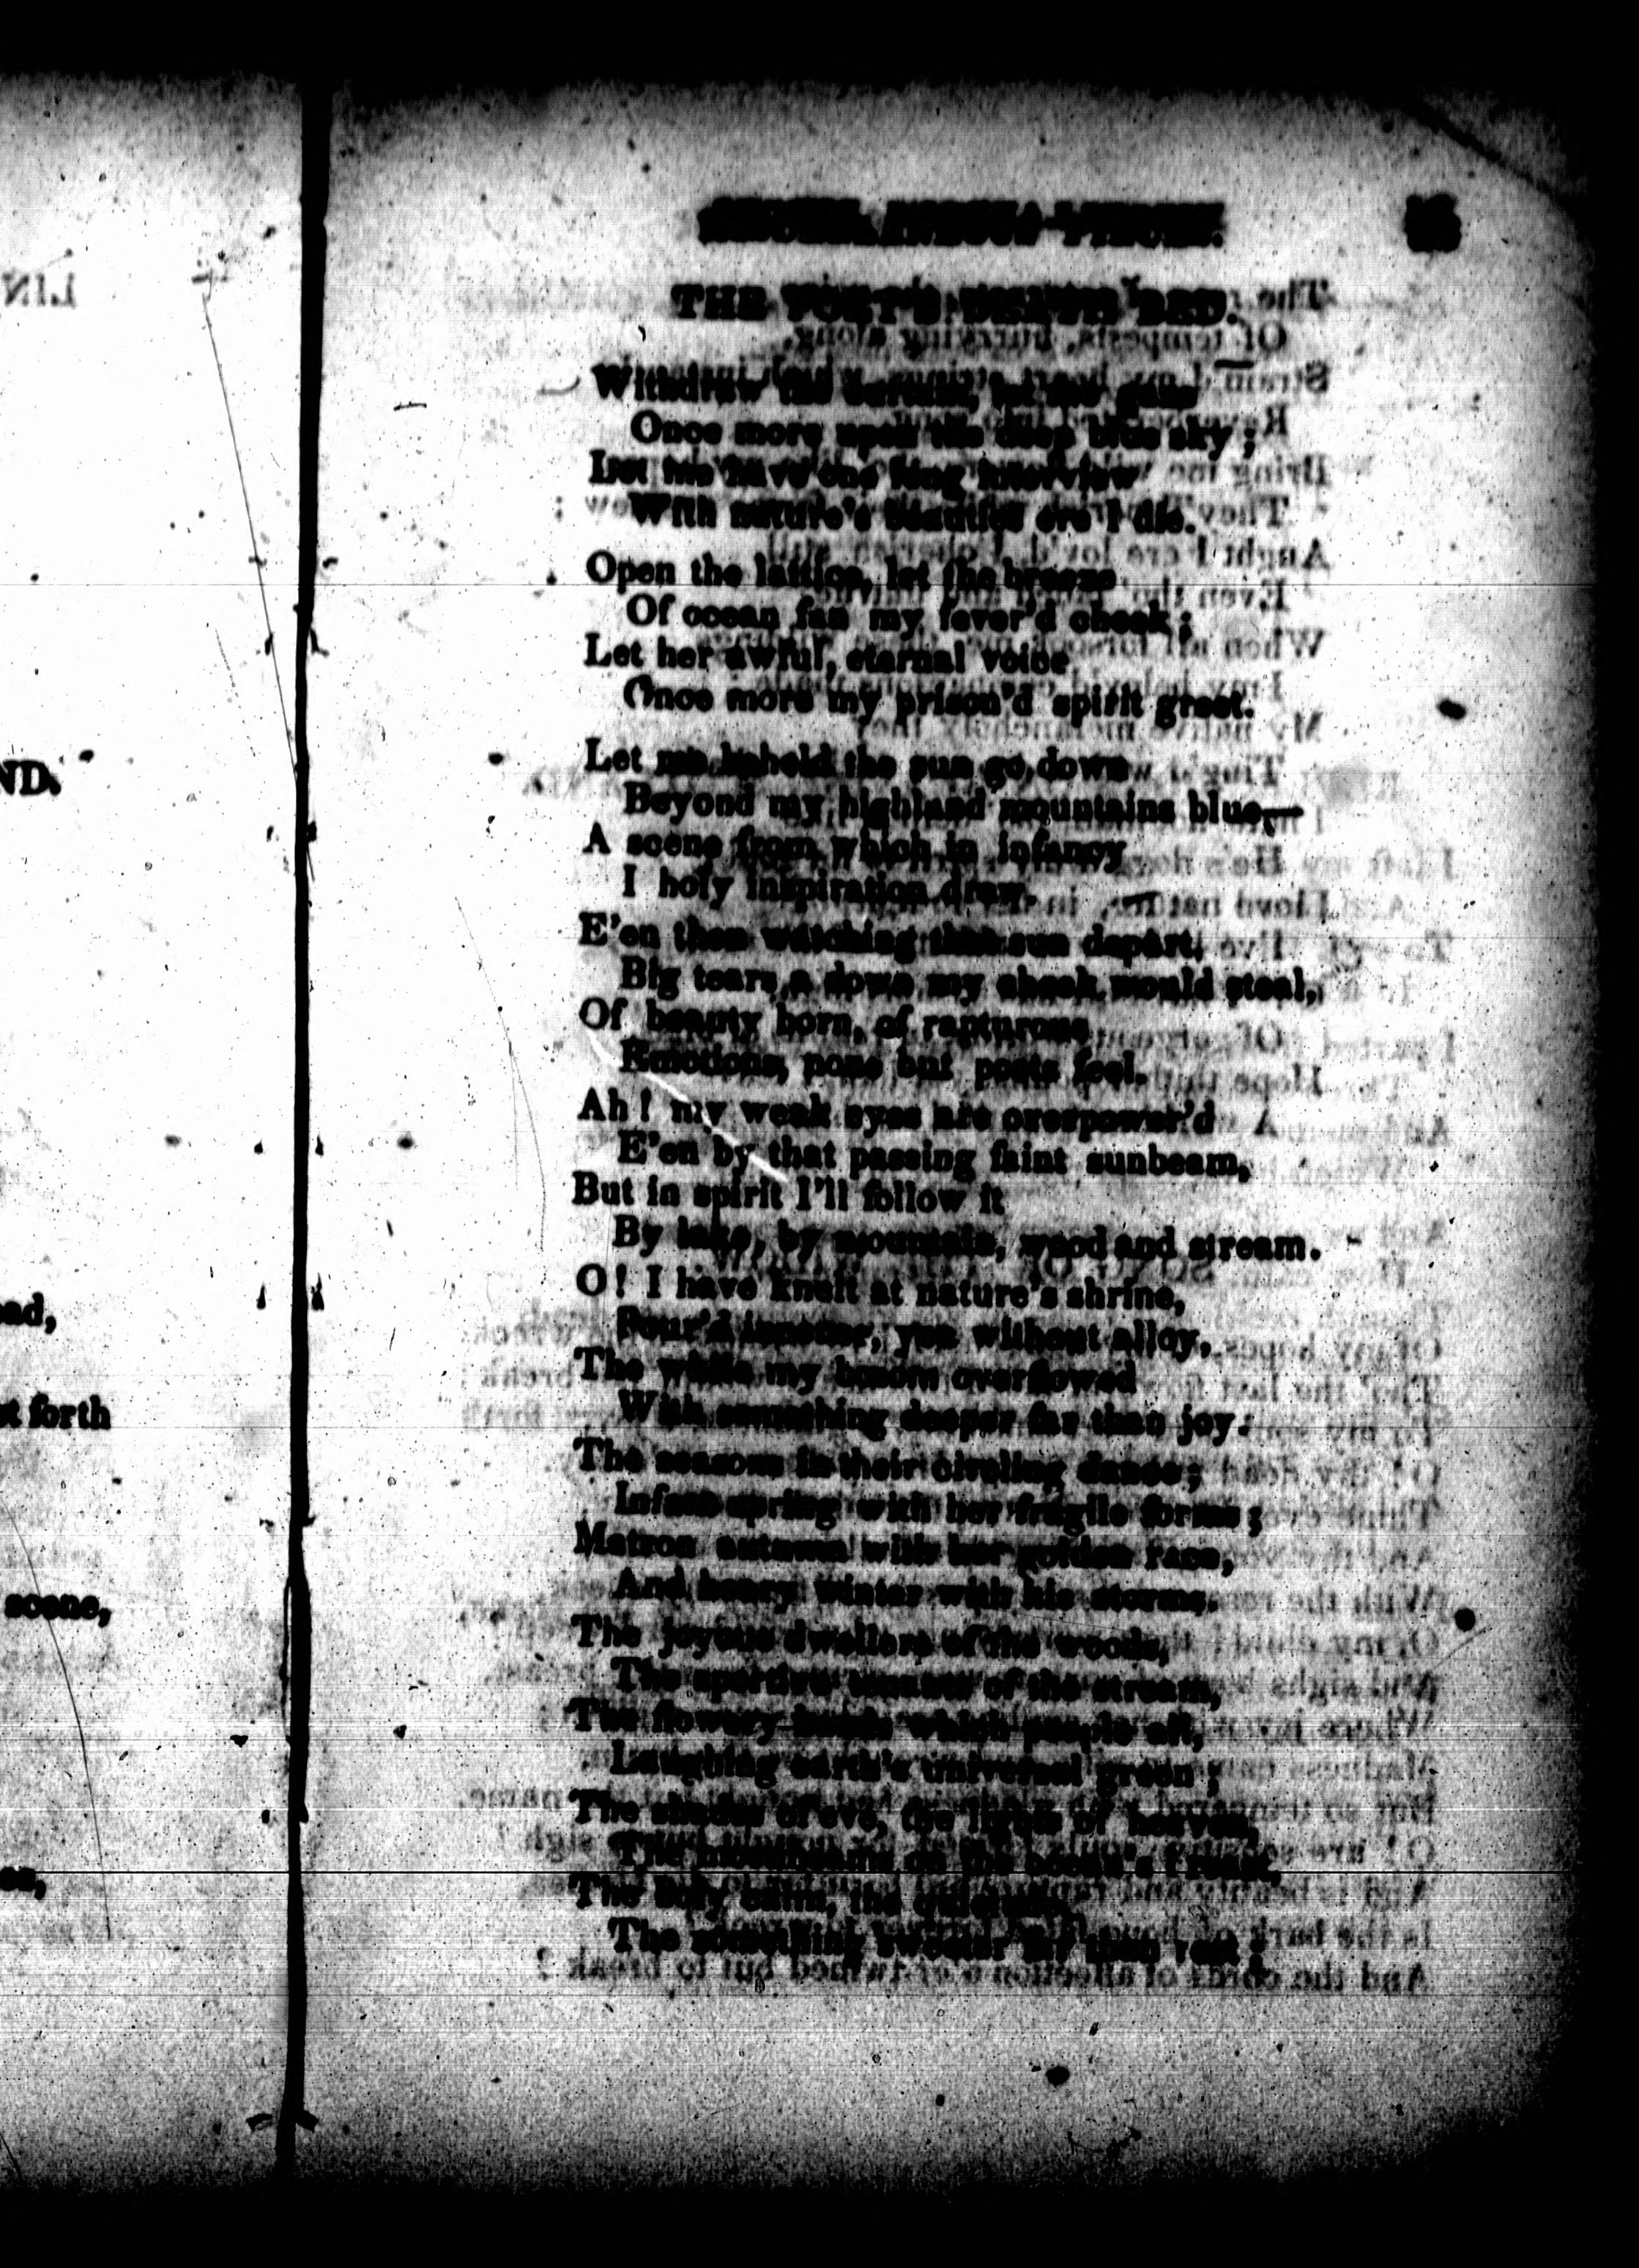 ND.
ad,
t forth
scene,
MISCELLANEOUS PIECES.
THE POET'S DEATH BED.
Withdraw the curtain, let me gaze
Once more upon the deep blue sky;
Let me have one long interview
With nature's beauties ere I die.
Open the lattice, let the breeze
Of ocean fan my fever'd cheek;
Let her awful, eternal voice
Once more my prison'd spirit greet.
Let me behold the sun go down
Beyond my highland mountains blue,—
A scene from which in infancy
I holy inspiration drew.
E'en then watching that sun depart,
Big tears a down my cheek would steal,
Of beauty born, of rapturous
Emotions, none but poets feel.
Ah! my weak eyes are overpower'd
E'en by that passing faint sunbeam,
But in spirit I'll follow it
By lake, by mountain, wood and stream.
O! I have knelt at nature's shrine,
Pour'd incense, yes without alloy,
The while my bosom overflowed
With something deeper far than joy.
The seasons in their circling dance;
Infant spring with her fragile forms;
Matron autumn with her golden race,
And hoary winter with his storms.
The joyous dwellers of the woods,
The sportive tenants of the stream,
The flowery which people all,
Laughing earth's universal green;
The shades of eve, the lights of heaven,
The moonbeams on the ocean's breast,
The holy calm, the quietude,
The something sweeter far than rest;